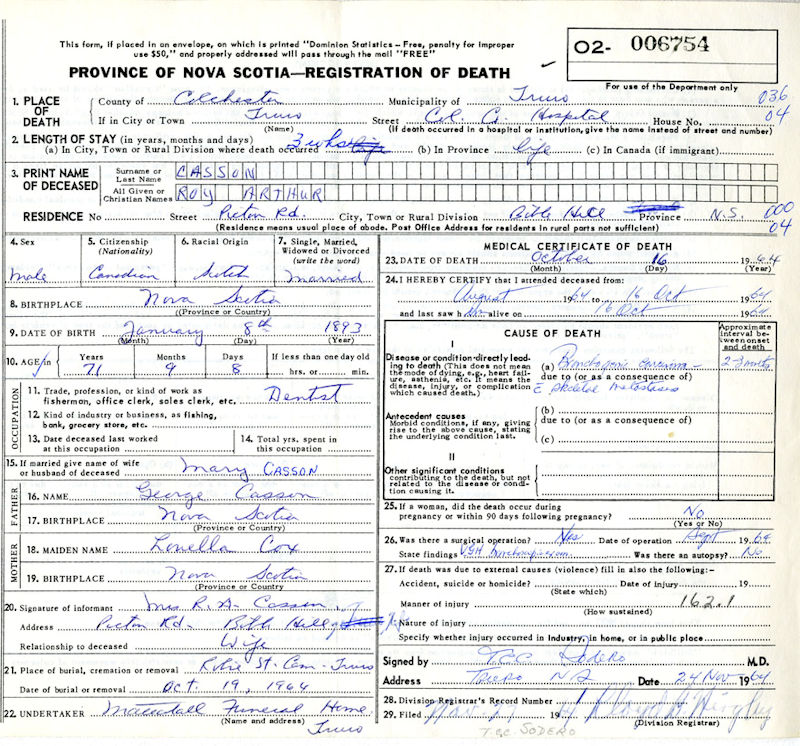 This form, if placed in an envelope, on which is printed "Dominion Statistics - Free, penalty for improper
use $50," and properly addressed will pass through the mail "FREE"
O2- 006754
PROVINCE OF NOVA SCOTIA—REGISTRATION OF DEATH
For use of the Department only
1. PLACE OF DEATH
County of Colchester Municipality of Truro 036
If in City or Town Truro Street Col. Co. Hospital House No. 04
(Name) (If death occurred in a hospital or institution, give the name instead of street and number)
2. LENGTH OF STAY (in years, months and days)
(a) In City, Town or Rural Division where death occurred 3 wks (b) In Province life (c) In Canada (if immigrant)
3. PRINT NAME OF DECEASED
Surname or Last Name CASSON
All Given or Christian Names ROY ARTHUR
RESIDENCE No Street Picton Rd. City, Town or Rural Division Bible Hill Province N.S. 000
04
(Residence means usual place of abode. Post Office Address for residents in rural parts not sufficient)
4. Sex
Male
5. Citizenship
(Nationality)
Canadian
6. Racial Origin
Scotch
7. Single, Married, Widowed or Divorced
(write the word)
Married
8. BIRTHPLACE Nova Scotia
(Province or Country)
9. DATE OF BIRTH January 8th 1893
(Month) (Day) (Year)
10. AGE in
Years 71
Months 9
Days 8
If less than one day old
hrs. or min.
OCCUPATION
11. Trade, profession, or kind of work as
fisherman, office clerk, sales clerk, etc. Dentist
12. Kind of industry or business, as fishing,
bank, grocery store, etc.
13. Date deceased last worked
at this occupation
14. Total yrs. spent in
this occupation
15. If married give name of wife
or husband of deceased Mary CASSON
FATHER
16. NAME George Casson
17. BIRTHPLACE Nova Scotia
(Province or Country)
MOTHER
18. MAIDEN NAME Louella Cox
19. BIRTHPLACE Nova Scotia
(Province or Country)
20. Signature of informant Mrs R. A. Casson
Address Picton Rd. Bible Hill
Relationship to deceased Wife
21. Place of burial, cremation or removal Robie St. Cem - Truro
Date of burial or removal Oct. 19, 1964
22. UNDERTAKER Mattatall Funeral Home
(Name and address) Truro
MEDICAL CERTIFICATE OF DEATH
23. DATE OF DEATH October 16 1964
(Month) (Day) (Year)
24. I HEREBY CERTIFY that I attended deceased from:
August 1964 to 16 Oct 1964
and last saw him alive on 16 Oct 1964
CAUSE OF DEATH
Approximate interval between onset and death
I
Disease or condition directly leading to death (This does not mean the mode of dying, e.g., heart failure, asthenia, etc. It means the disease, injury, or complication which caused death.)
(a) Bronchogenic carcinoma 2-3 months
due to (or as a consequence of)
c̄ skeletal metastases
Antecedent causes
Morbid conditions, if any, giving rise to the above cause, stating the underlying condition last.
(b)
due to (or as a consequence of)
(c)
II
Other significant conditions
contributing to the death, but not related to the disease or condition causing it.
25. If a woman, did the death occur during
pregnancy or within 90 days following pregnancy? No
(Yes or No)
26. Was there a surgical operation? Yes Date of operation Sept 1964
State findings VGH Was there an autopsy? No
27. If death was due to external causes (violence) fill in also the following:-
Accident, suicide or homicide? Date of injury 19
(State which)
Manner of injury 162.1
(How sustained)
Nature of injury
Specify whether injury occurred in Industry, in home, or in public place
Signed by T.G.C. Sodero M.D.
Address Truro NS Date 24 Nov 1964
28. Division Registrar's Record Number
29. Filed Nov. 27 19
(Division Registrar)
T.G.C. SODERO